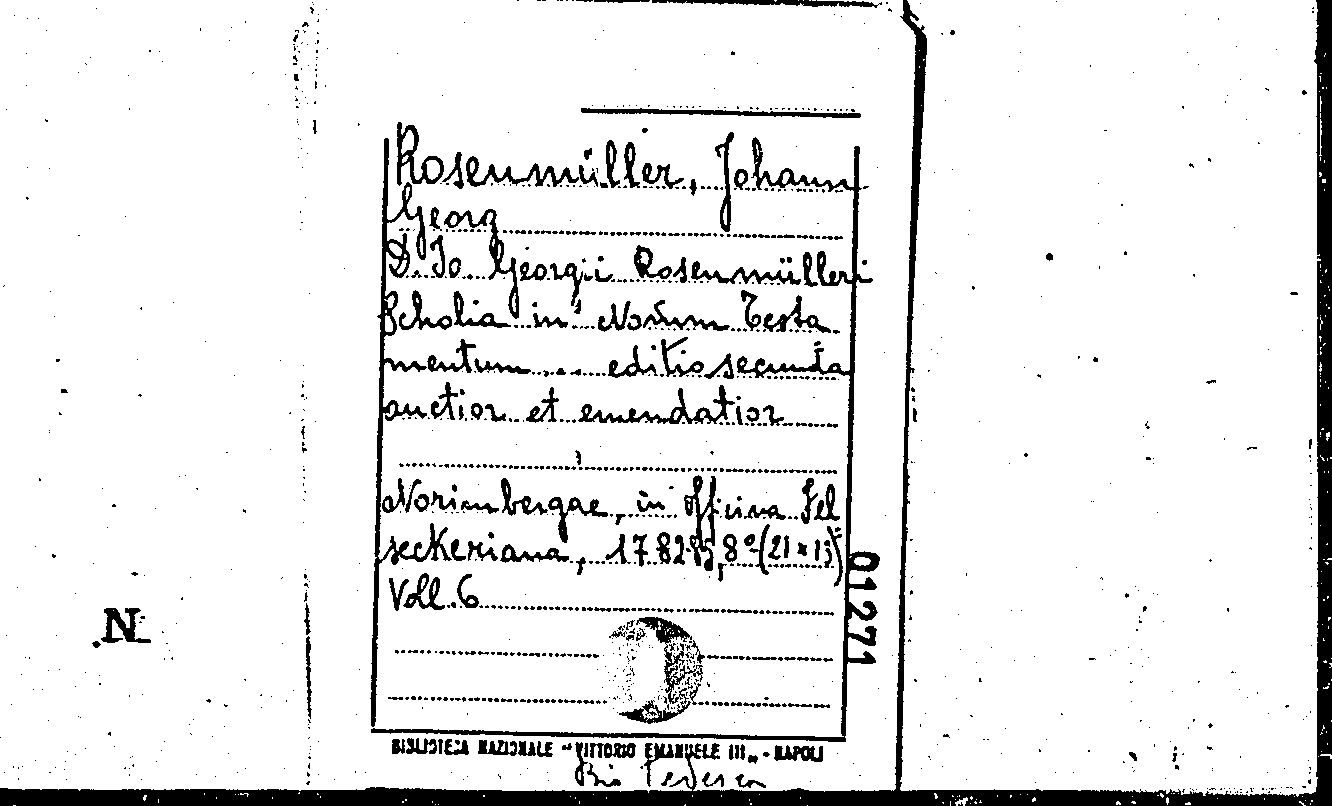 Rosenmüller, Johann
Georg
D. Jo. Georgii Rosenmülleri
Scholia in Novum Testa
mentum ... editio secunda
auctior et emendatior
Norimbergae, in officina Fel
seckeriana, 1782-85, 8º (21×13)
Voll. 6
01271
N
BIBLIOTECA NAZIONALE "VITTORIO EMANUELE III„ - NAPOLI